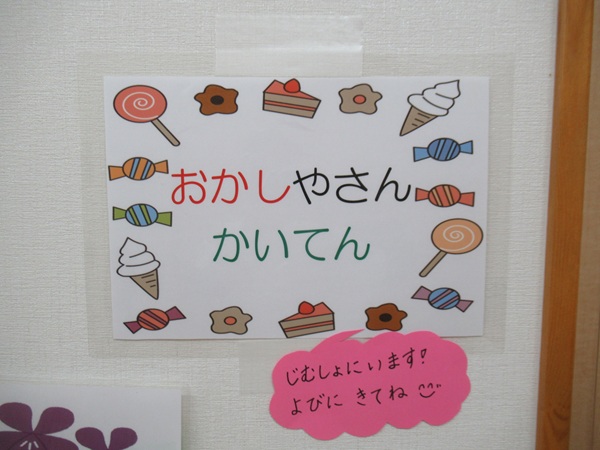 おかしやさん
かいてん
じむしょにいます!
よびに きてね